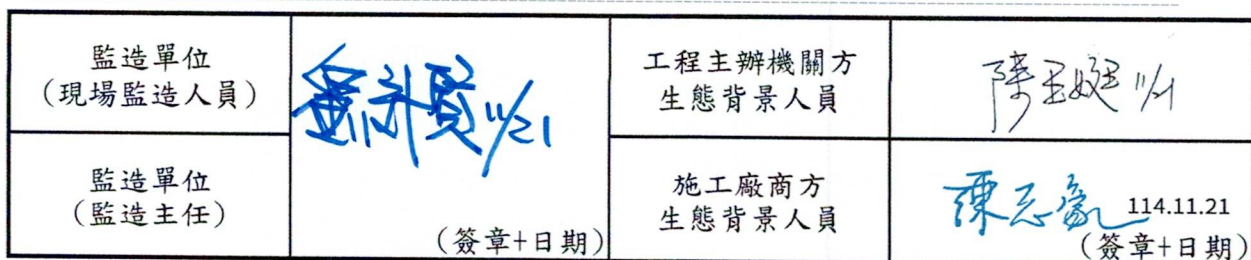 監造單位
(現場監造人員)
11/21
工程主辦機關方
生態背景人員
11/21
監造單位
(監造主任)
(簽章+日期)
施工廠商方
生態背景人員
114.11.21
(簽章+日期)